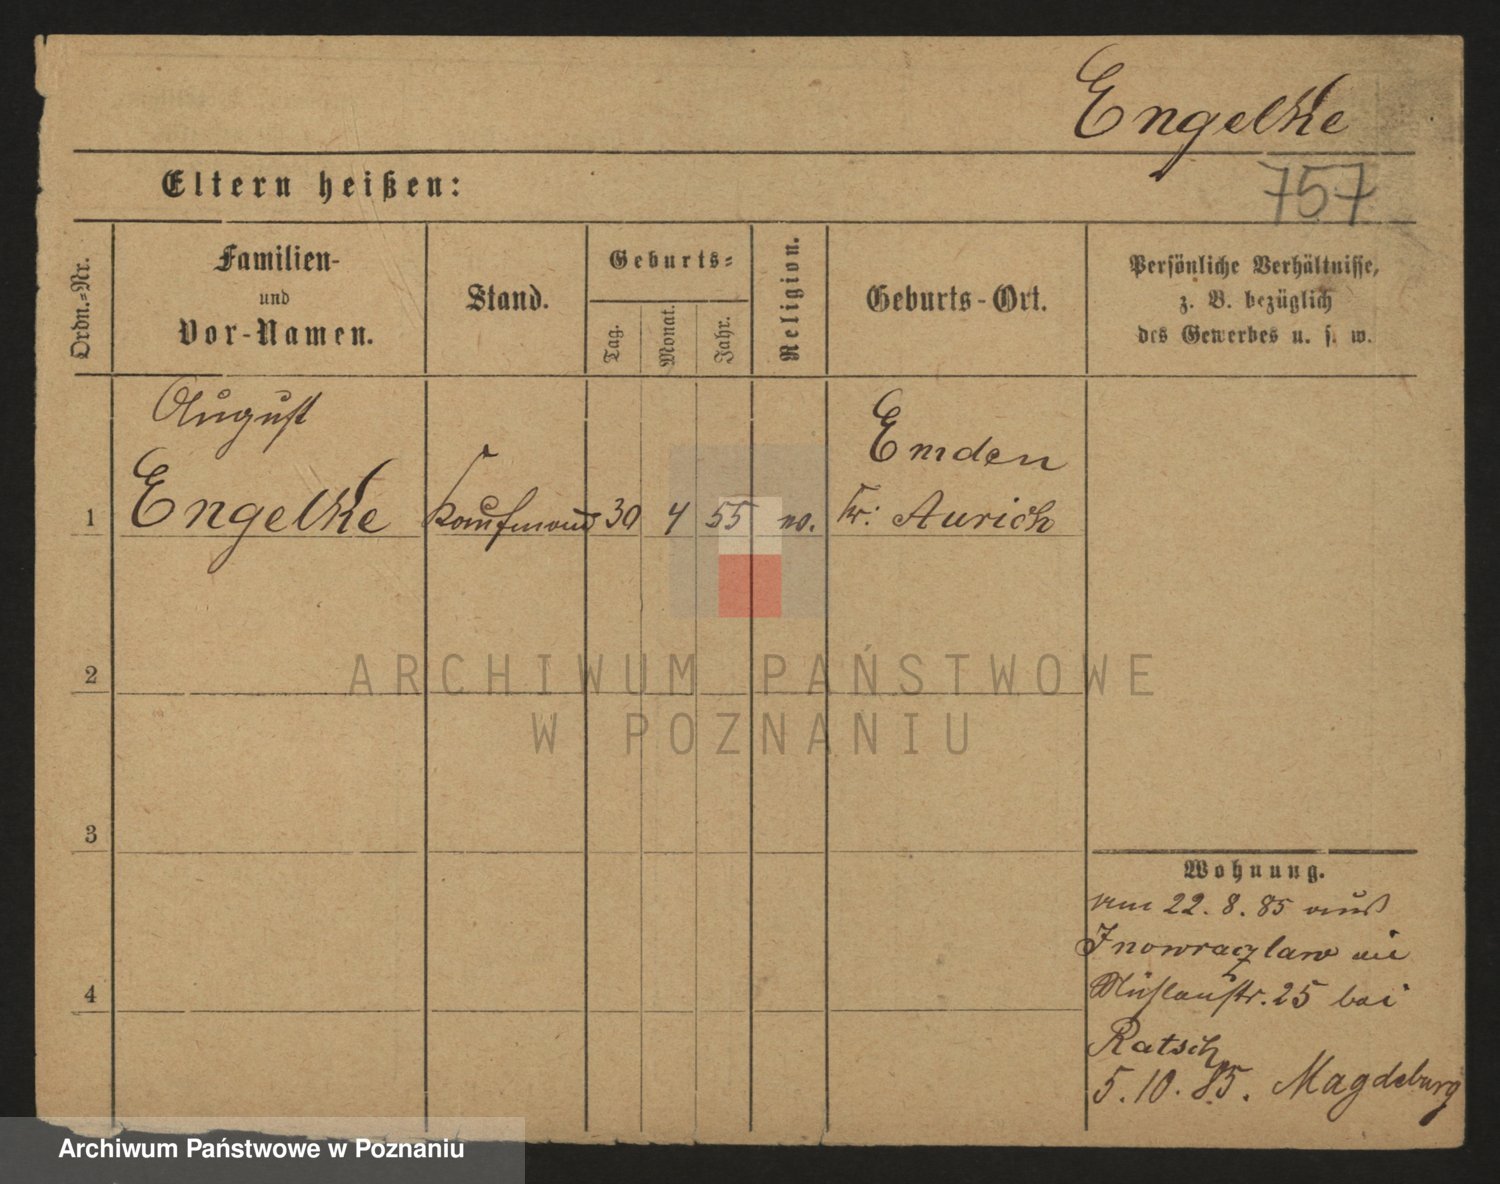 Engelke
757
Eltern heißen:
Ordn.=Nr.
Familien-
und
Vor-Namen.
Stand.
Geburts=
Tag.
Monat.
Jahr.
Religion.
Geburts-Ort.
Persönliche Verhältnisse,
z. B. bezüglich
des Gewerbes u. s. w.
August
Emden
1 Engelke Kaufmann 30 4 55 Kr: Aurich
2
3
4
Wohnung.
am 22. 8. 85 aus
Inowrazlaw
Mühlenstr. 25 bei
Ratsch
5. 10. 85. Magdeburg
ARCHIWUM PAŃSTWOWE
W POZNANIU
Archiwum Państwowe w Poznaniu